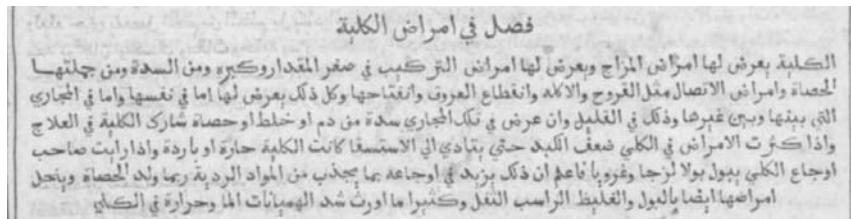 فصل في امراض الكلية
الكلية يعرض لها امراض المزاج ويعرض لها امراض التركيب في صغر المقدار وكبره ومن السدة ومن جملتها
الحصاة وامراض الاتصال مثل القروح والاكله وانقطاع العروق وانفتاحها وكل ذلك يعرض لها اما في نفسها واما في المجاري
التي بينها وبين غيرها وذلك في القليل وان عرض في تلك المجاري سدة من دم او خلط او حصاة شارك الكلية في العلاج
واذا كثرت الامراض في الكلي ضعف الكبد حتي يتادي الي الاستسقا كانت الكلية حارة او باردة واذا رايت صاحب
اوجاع الكلي يبول بولا لزجا وغرويا فاعلم ان ذلك يزيد في اوجاعه بما يجذب من المواد الردية ربما ولد الحصاة وينحل
امراضها ايضا بالبول والغليظ الراسب الثفل وكثيرا ما اورث شد الهميانات الما وحرارة في الكلي